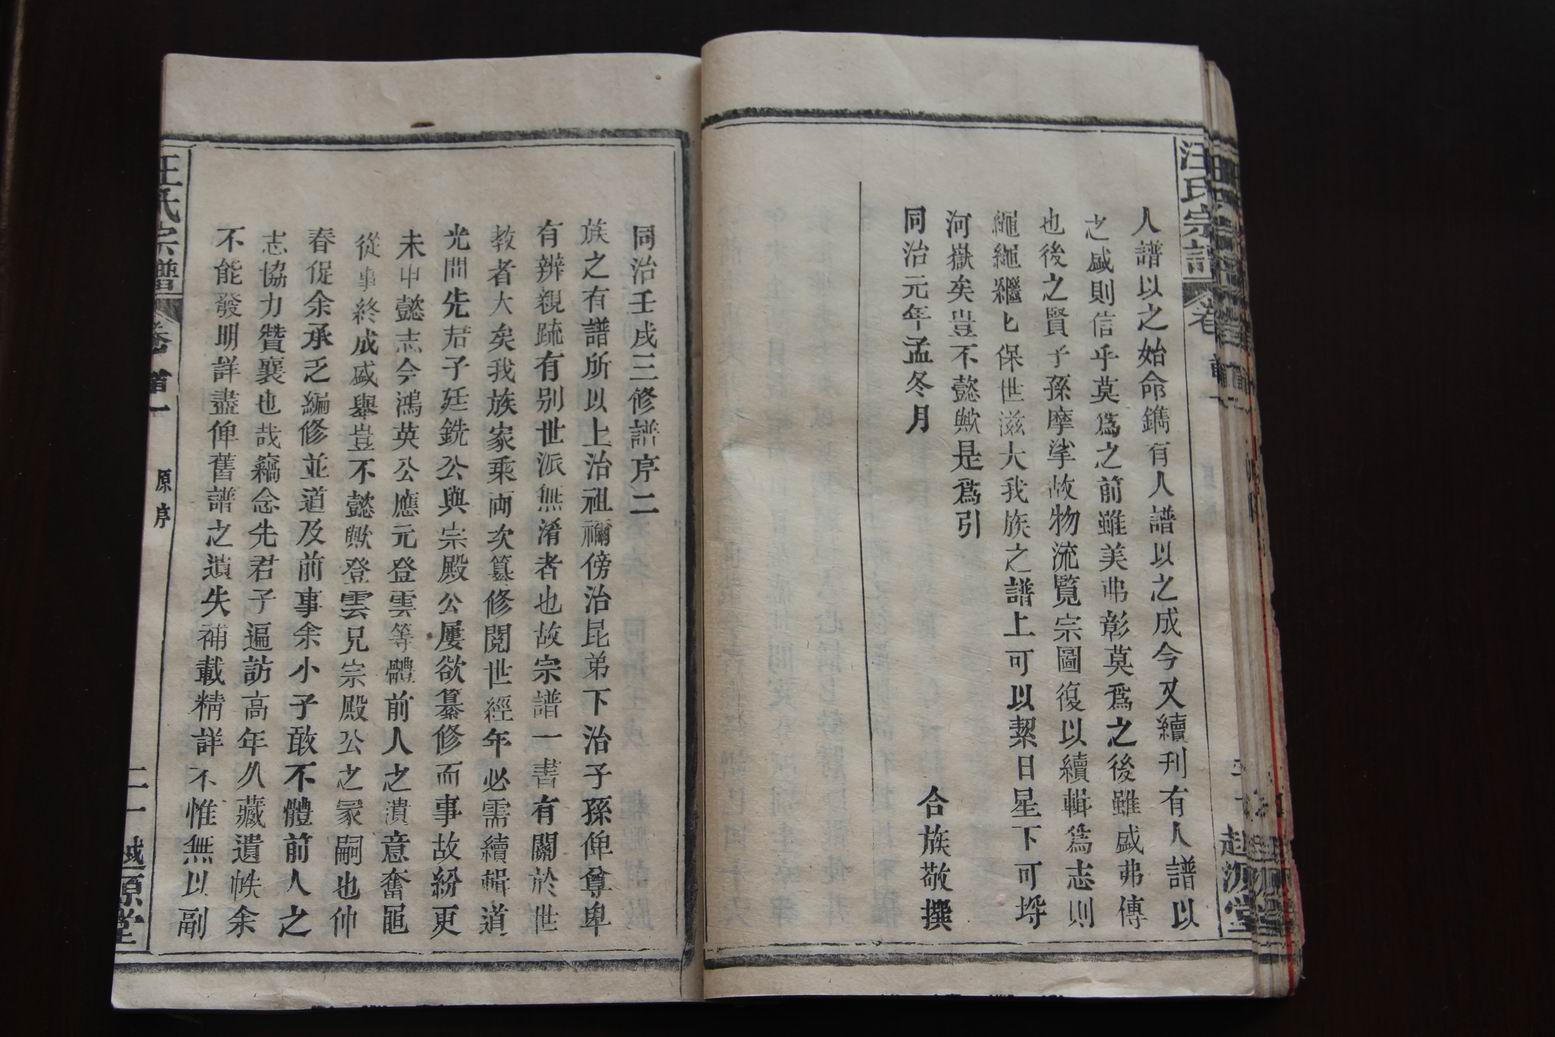 汪氏宗譜
卷
人譜以之始命鐫有人譜以之成今又續刊有人譜以
之盛則信乎莫爲之前雖美弗彰莫爲之後雖盛弗傳
也後之賢子孫摩挲故物流覽宗圖復以續輯爲志則
繩繩繼匕保世滋大我族之譜上可以絜日星下可埒
河嶽矣豈不懿歟是爲引
同治元年孟冬月
合族敬撰
同治壬戌三修譜序二
族之有譜所以上治祖禰傍治昆弟下治子孫俾尊卑
有辨親疏有别世派無淆者也故宗譜一書有關於世
教者大矣我族家乘両次篡修閱世經年必需續輯道
光間先君子廷銑公與宗殿公屢欲纂修而事故紛更
未申懿志今鴻英公應元登雲等體前人之遺意奮黽
從事終成盛舉豈不懿歟登雲兄宗殿公之冢嗣也仲
春促余承乏編修並道及前事余小子敢不體前人之
志協力贊襄也哉竊念先君子遍訪高年久藏遺帙余
不能發明詳盡俾舊譜之遺失補載精詳不惟無以副
汪氏宗譜
卷首一
原序
二
越源堂